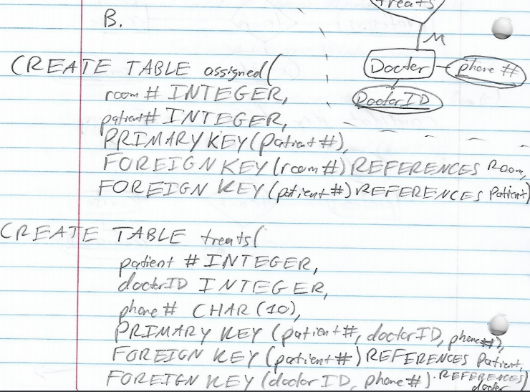 treats
B.
M
Doctor
phone #
Doctor ID
CREATE TABLE assigned(
room# INTEGER,
patient# INTEGER,
PRIMARY KEY (patient#),
FOREIGN KEY (room#) REFERENCES Room,
FOREIGN KEY (patient#) REFERENCES Patient)
CREATE TABLE treats(
patient # INTEGER,
doctorID INTEGER,
phone# CHAR (10),
PRIMARY KEY (patient#, doctorID, phone#),
FOREIGN KEY (patient#) REFERENCES Patient,
FOREIGN KEY (doctor ID, phone#) REFERENCES
doctor